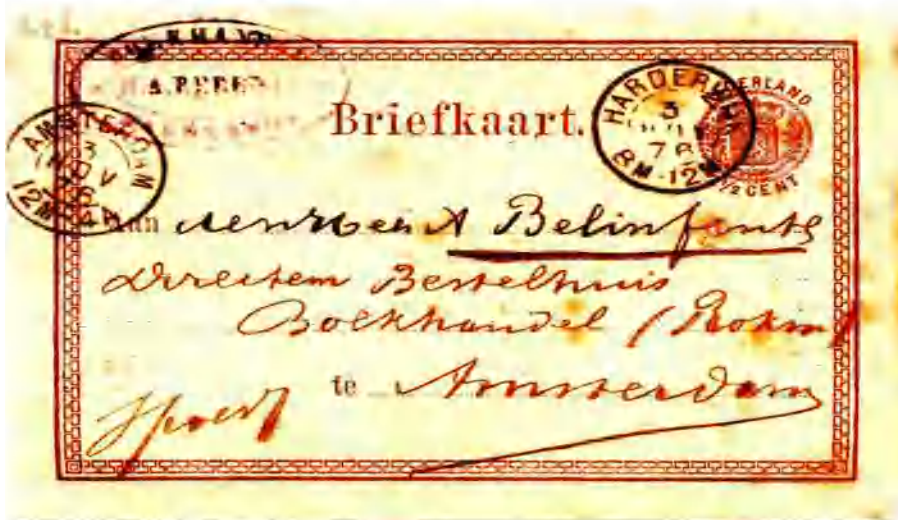 Briefkaart.
HARDERWIJK
3
NOV
78
8M-12M
NEDERLAND
½ CENT
AMSTERDAM
3
NOV
12M
Aan den Heer A Belinfante
Directeur Bestelhuis
Boekhandel (Rokin)
te Amsterdam
Spoed